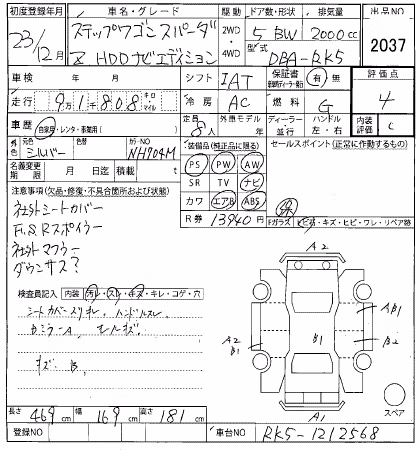 初度登録年月 車名・グレード 駆動 ドア数・形状 排気量 出品NO
23年 12月 ステップワゴン スパーダ 2WD 4WD 5 BW 2000cc 2037
Z HDDナビエディション 型式 DBA-RK5
車検 年 月 シフト IAT 保証書 有・無 評価点
走行 9万1千808 キロ マイル 冷房 AC 燃料 G 4
車歴 自家用・レンタ・事業用( ) 定員 8人 外車モデル 年 ディーラー 並行 ハンドル 左・右 内装評価 C
外色 元色 シルバー 色替 カラーNO NH704M 装備品(純正品に限る) セールスポイント(正常に作動するもの)
名義変更期限 月 日迄 積載 t PS PW AW
注意事項(欠品・修復・不具合箇所および状態) SR TV ナビ
社外シートカバー カワ エアB ABS
F.S.Rスポイラー R券 13940円
社外マフラー Fガラス ヒビ・キズ・ヒビ・ワレ・リペア跡
ダウンサス? A2
検査員記入 内装 汚れ・スレ・キズ・キレ・コゲ・穴
シートカバースリキレ ハンドルスレ
A2 B1 B1 A2 B2
キズ B
長さ 469cm 幅 169cm 高さ 181cm A1 スペア
登録NO 車台NO RK5-1212568